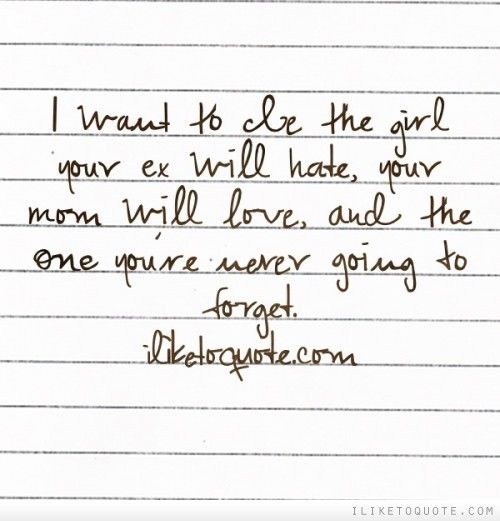 I want to be the girl
your ex will hate, your
mom will love, and the
one you're never going to
forget.
iliketoquote.com
ILIKETOQUOTE.COM